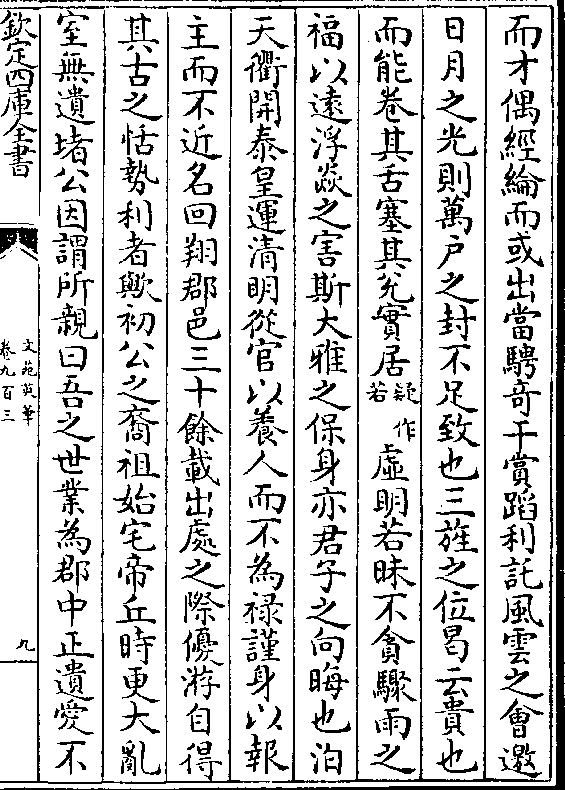 而才偶經綸而或出當騁奇干賞蹈利託風雲之會邀
日月之光則萬户之封不足致也三旌之位曷云貴也
而能卷其舌塞其兊實居疑作若虛明若昧不貪驟雨之
福以遠浮焱之害斯大雅之保身亦君子之向晦也洎
天衢開泰皇運清明從官以養人而不為禄謹身以報
主而不近名回翔郡邑三十餘載出處之際優游自得
其古之恬勢利者歟初公之裔祖始宅帝丘時更大亂
室無遺堵公因謂所親曰吾之世業為郡中正遺愛不
欽定四庫全書
文苑英華
卷九百三
九